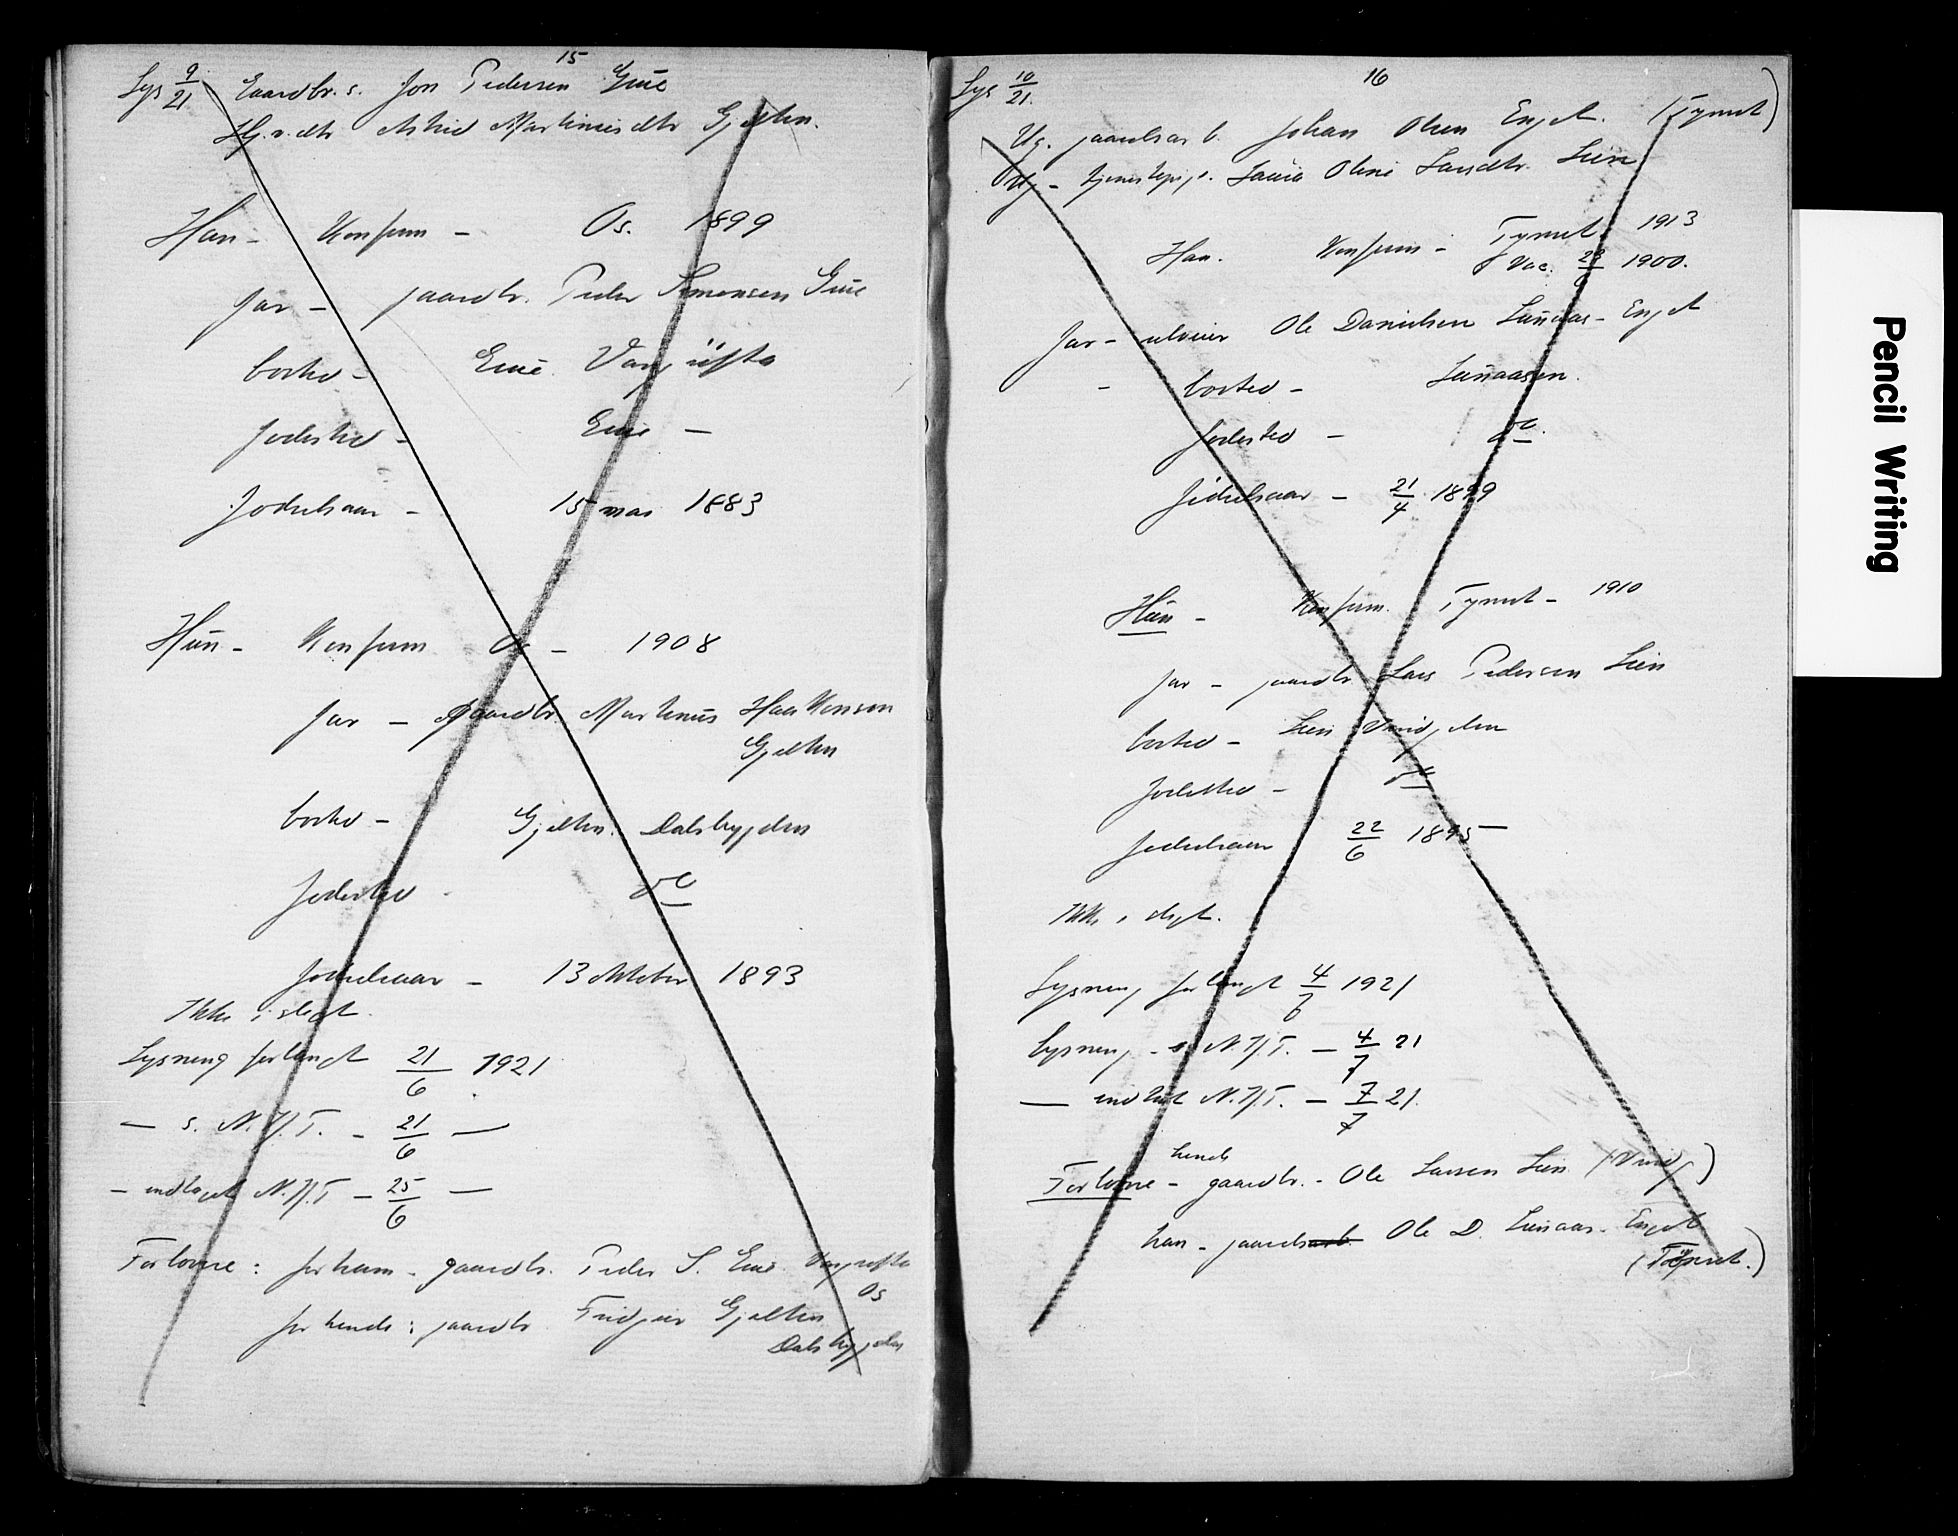 15
Lys 9/21 Gaardbr. s. Jon Pedersen Eine
Astrid Martinusdtr Gjelten.
Han - Konfirm - Os. 1899
far - gaardbr. Peder Simensen Eine
bosted - Eine Vangrøfta
fødested - Eine -
fødselsaar - 15 mai 1883
Hun - Konfirm Os - 1908
far - gaardbr. Martinus Haakonsen
Gjelten
bosted - Gjelten. Dalsbygden
fødested do
fødselsaar - 13 oktober 1893
Ikke i slegt.
Lysning forlangt 21/6 1921
— s. N.T.T. - 21/6 —
- indtaget N.T.T - 25/6 —
Forlovere : for ham - gaardbr. Peder S. Eine Vangrøfta
Os
for hende : gaardbr Gjelten
Dalsbygden
16
Lys 10/21.
Ug. gaardsarb. Johan Olsen Enget. (Tynset)
Ug - tjenestepige. Laura Oline Larsdtr. Lien
Han. Konfirm - Tynset 1913
Vac. 1900.
far - Ole Danielsen Lunaas - Enget
- bosted - Lunaasen.
fødested - do.
fødselsaar - 21/4 1899
Hun - Konfirm. Tynset - 1910
far - gaardbr Lars Pedersen Lien
bosted - Lien
fødested - do
fødselsaar 22/6 1895 —
Ikke i slegt.
Lysning forlangt 4/7 1921
Lysning - s. N.T.T. - 4/7 21
— indtat N.T.T. - 7/7 21.
hends
Forlovere - gaardbr. - Ole Larsen Lien
han - gaardsarb. Ole D. Lunaas - Enget
(Tynset.)
Pencil Writing